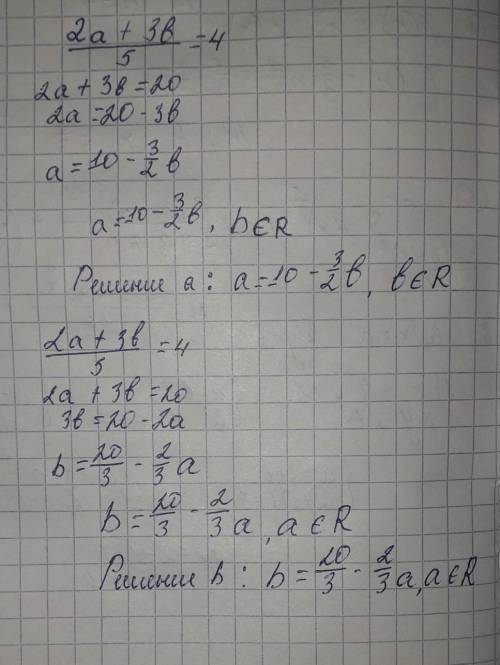 (2a + 3b)/5 = 4
2a + 3b = 20
2a = 20 - 3b
a = 10 - 3/2 b
a = 10 - 3/2 b, b ∈ R
Решение a: a = 10 - 3/2 b, b ∈ R
(2a + 3b)/5 = 4
2a + 3b = 20
3b = 20 - 2a
b = 20/3 - 2/3 a
b = 20/3 - 2/3 a, a ∈ R
Решение b: b = 20/3 - 2/3 a, a ∈ R